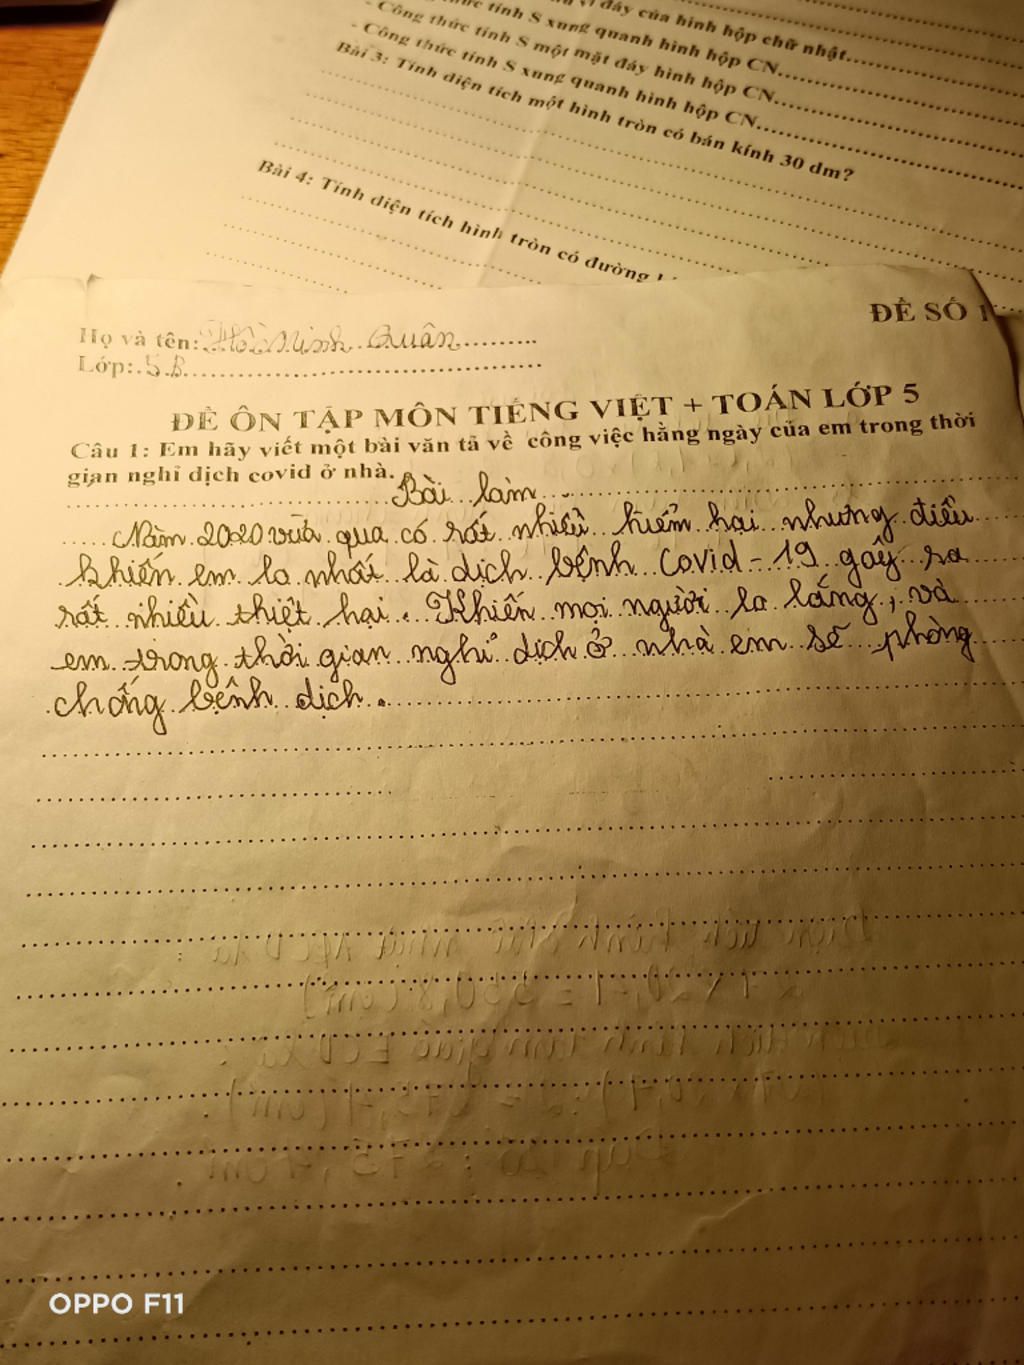 vi đáy của hình hộp chữ nhật
thức tính S xung quanh hình hộp CN
- Công thức tính S một mặt đáy hình hộp CN
- Công thức tính S xung quanh hình hộp CN
Bài 3: Tính diện tích một hình tròn có bán kính 30 dm?
Bài 4: Tính diện tích hình tròn có đường
ĐỀ SỐ 1
Họ và tên: Hồ Minh Quân
Lớp: 5B
ĐỀ ÔN TẬP MÔN TIẾNG VIỆT + TOÁN LỚP 5
Câu 1: Em hãy viết một bài văn tả về công việc hằng ngày của em trong thời
gian nghỉ dịch covid ở nhà.
Bài làm
Năm 2020 vừa qua có rất nhiều hiểm hại nhưng điều
khiến em lo nhất là dịch bệnh Covid-19 gây ra
rất nhiều thiệt hại. Khiến mọi người lo lắng, và
em trong thời gian nghỉ dịch ở nhà em sẽ phòng
chống bệnh dịch.
OPPO F11